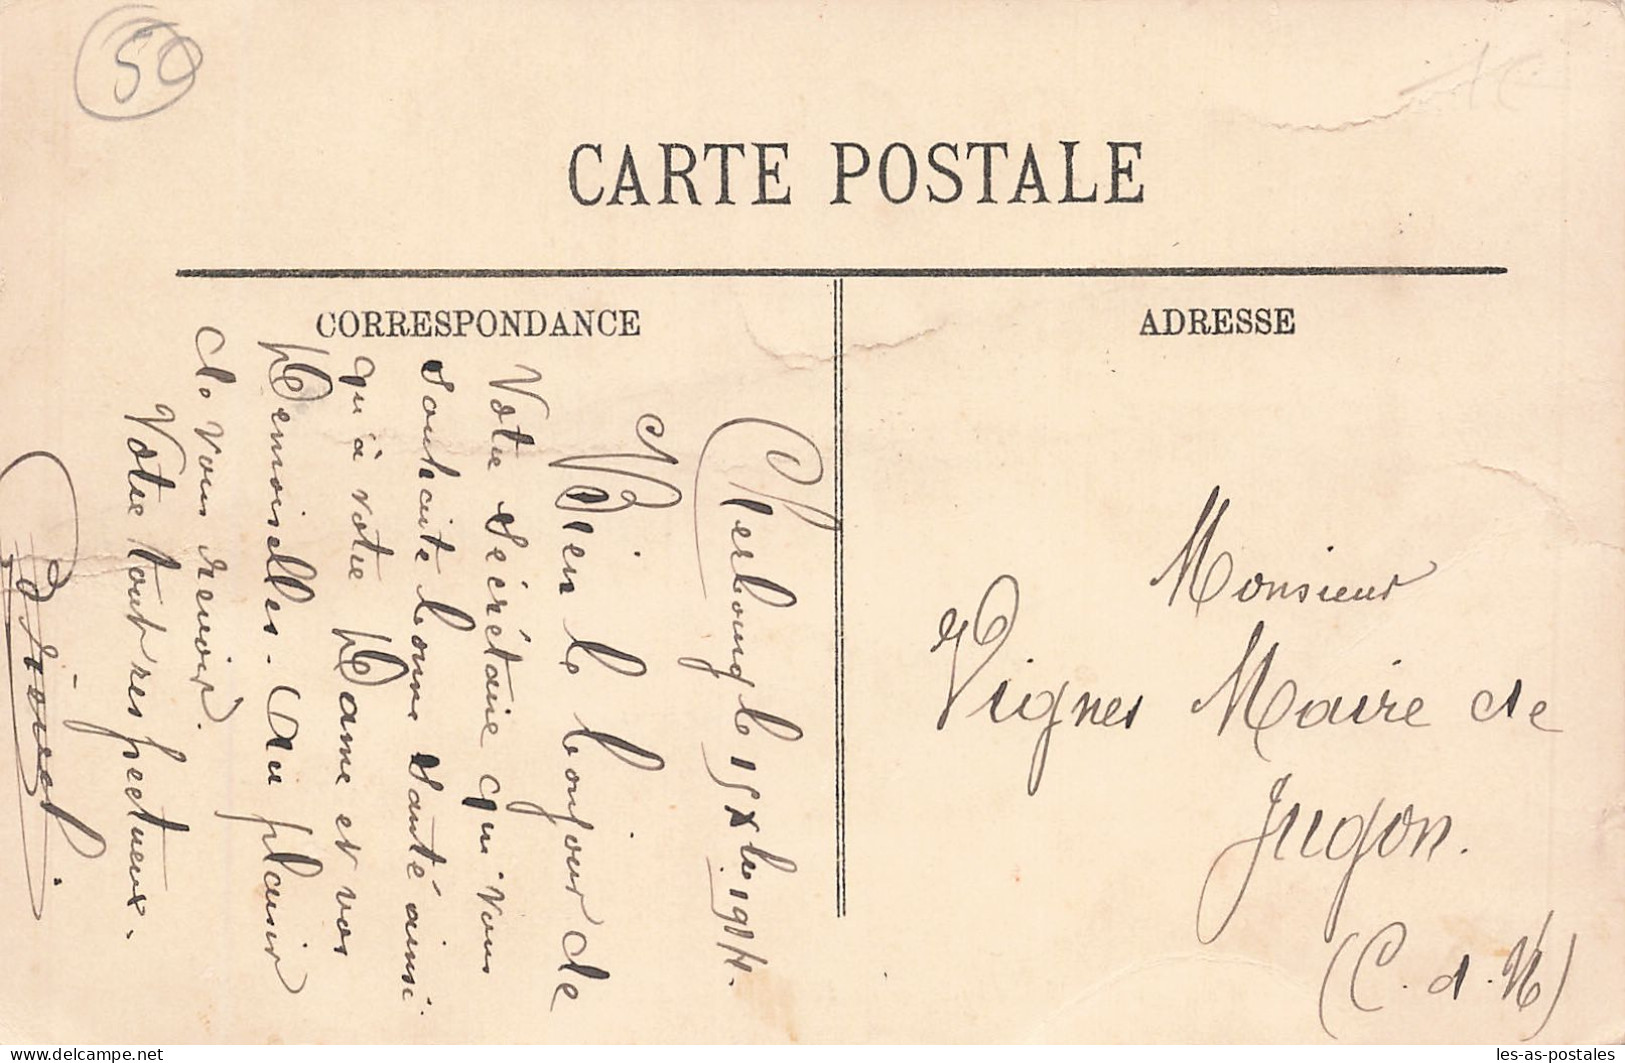 50
CARTE POSTALE
CORRESPONDANCE
ADRESSE
Cherbourg le 15 Xbre 1914.
Bien le bonjour de
Votre Secrétaire qui vous
souhaite bonne santé ainsi
qu'à votre Dame et vos
Demoiselles. Au plaisir
de vous revoir.
Votre tout respectueux.
Monsieur
Vignes Maire de
Jugon.
(C. d. N)
les-as-postales
delcampe.net